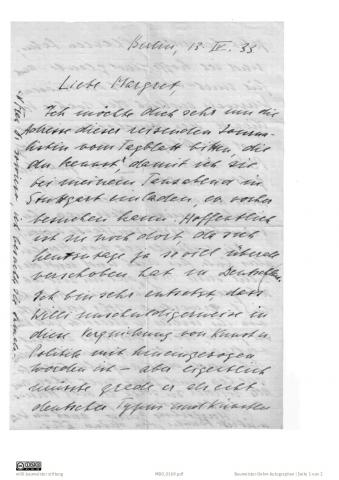 Berlin, 13. IV. 33.
Liebe Margret
Ich möchte dich sehr um die
Adresse dieser reisenden Journa-
listin vom Tagblatt bitten, die
du kennst, damit ich sie
bei meinem Tanzabend in
Stuttgart einladen, ev. vorher
besuchen kann. Hoffentlich
ist sie noch dort, da sich
heutzutage ja soviel überall
verschoben hat in Deutschland.
Ich bin sehr entsetzt, dass
Willi unschuldigerweise in
diese Vergiftung von Kunst u.
Politik mit hineingezogen
worden ist – aber eigentlich
müsste grade er als echt
deutscher Typus
willi baumeister stiftung
MBO_0169.pdf
Baumeister-Oehm Autographen | Seite 1 von 2